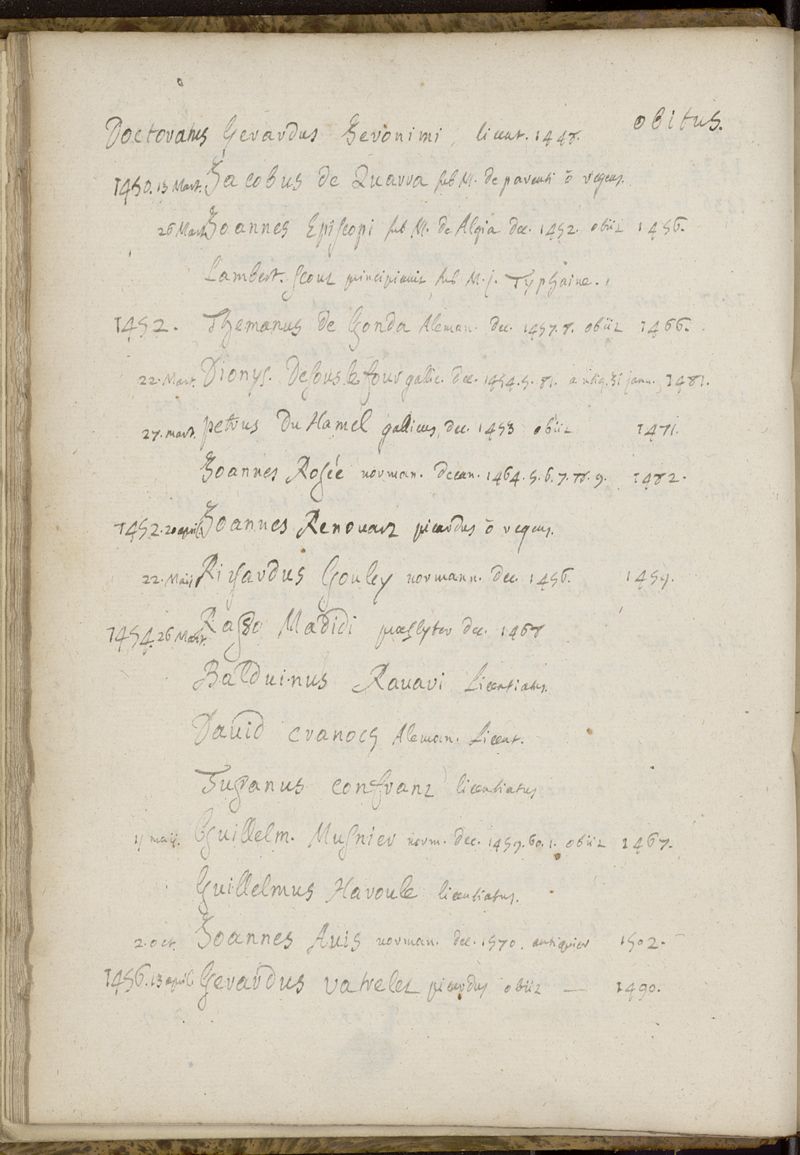 Doctoratus Gerardus Geronimi, licent. 1448. obitus.
1450. 13 Mart. Jacobus de Quarra sub M. de parenti ō regens.
26 Mart. Joannes Episcopi sub M. de Algia dec. 1452. obiit 1456.
Lambert. Scout principiavit sub M. J. Typhaine.
1452. Themanus de Gonda Aleman. dec. 1457.8. obiit 1466.
22. Mart. Dionys. Desous le four gallic. dec. 1454.5.81. antiq. 31 janu. 1481.
27. mart. petrus Du Hamel gallicus, dec. 1453 obiit 1471.
Joannes Rosée norman. decan. 1464.5.6.7.8.9. 1482.
1452. 20 april. Joannes Renouart picardus ō regens.
22. Maij Richardus Gouley normann. dec. 1456. 1459.
1454. 26 Mart. Rasso Madidi presbyter dec. 1468
Balduinus Ravavi licentiatus.
David Cranocs Aleman. licent.
Juganus Confrant licentiatus
maij. Guillelm. Musnier norm. dec. 1459.60.1. obiit 1467.
Guillelmus Havoule licentiatus.
2. oct. Joannes Avis norman. dec. 1470. antiquior 1502.
1456. 13 april. Gerardus Vatrelet picardus obiit — 1490.